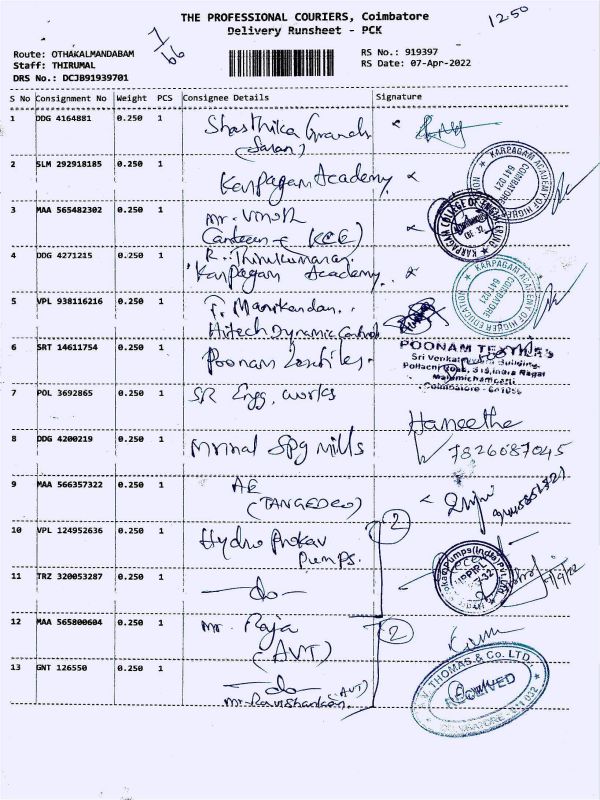 THE PROFESSIONAL COURIERS, Coimbatore
Delivery Runsheet - PCK
12-50
7/66
Route: OTHAKALMANDABAM
Staff: THIRUMAL
DRS No.: DCJB91939701
RS No.: 919397
RS Date: 07-Apr-2022
S No Consignment No Weight PCS Consignee Details Signature
1 DDG 4164881 0.250 1 Shasthika Grands
2 SLM 292918185 0.250 1 Karpagam Academy
KARPAGAM ACADEMY OF HIGHER EDUCATION
COIMBATORE
641 021
3 MAA 565482302 0.250 1 Mr. Vinoth
Canteen - (KCE)
KARPAGAM COLLEGE OF ENGINEERING
4 DDG 4271215 0.250 1 R. Thirukumaran
Karpagam Academy
KARPAGAM ACADEMY OF HIGHER EDUCATION
COIMBATORE
641 021
5 VPL 938116216 0.250 1 P. Manikandan.
Hitech Dynamic Control
6 SRT 14611754 0.250 1 Poonam Textiles.
POONAM TEXTILE's
Building,
Pollachi Road, 318, Indra Nagar
Malumichampatti
Coimbatore - 641050
7 POL 3692865 0.250 1 SR Engg. works
8 DDG 4200219 0.250 1 Mmal Spg mills
Haneetha
7826087045
9 MAA 566357322 0.250 1 AE
(TANGEDCO)
10 VPL 124952636 0.250 1 Hydro Prokav
Pumps.
2
11 TRZ 320053287 0.250 1 -do-
Prokav Pumps (India) Pvt. Ltd
HPPIPL
12 MAA 565800604 0.250 1 Mr. Raja
(AVT)
2
13 GNT 126550 0.250 1 -do-
Mr. Ravishankar (AVT)
A.V. THOMAS & Co. LTD.
RECEIVED
COIMBATORE